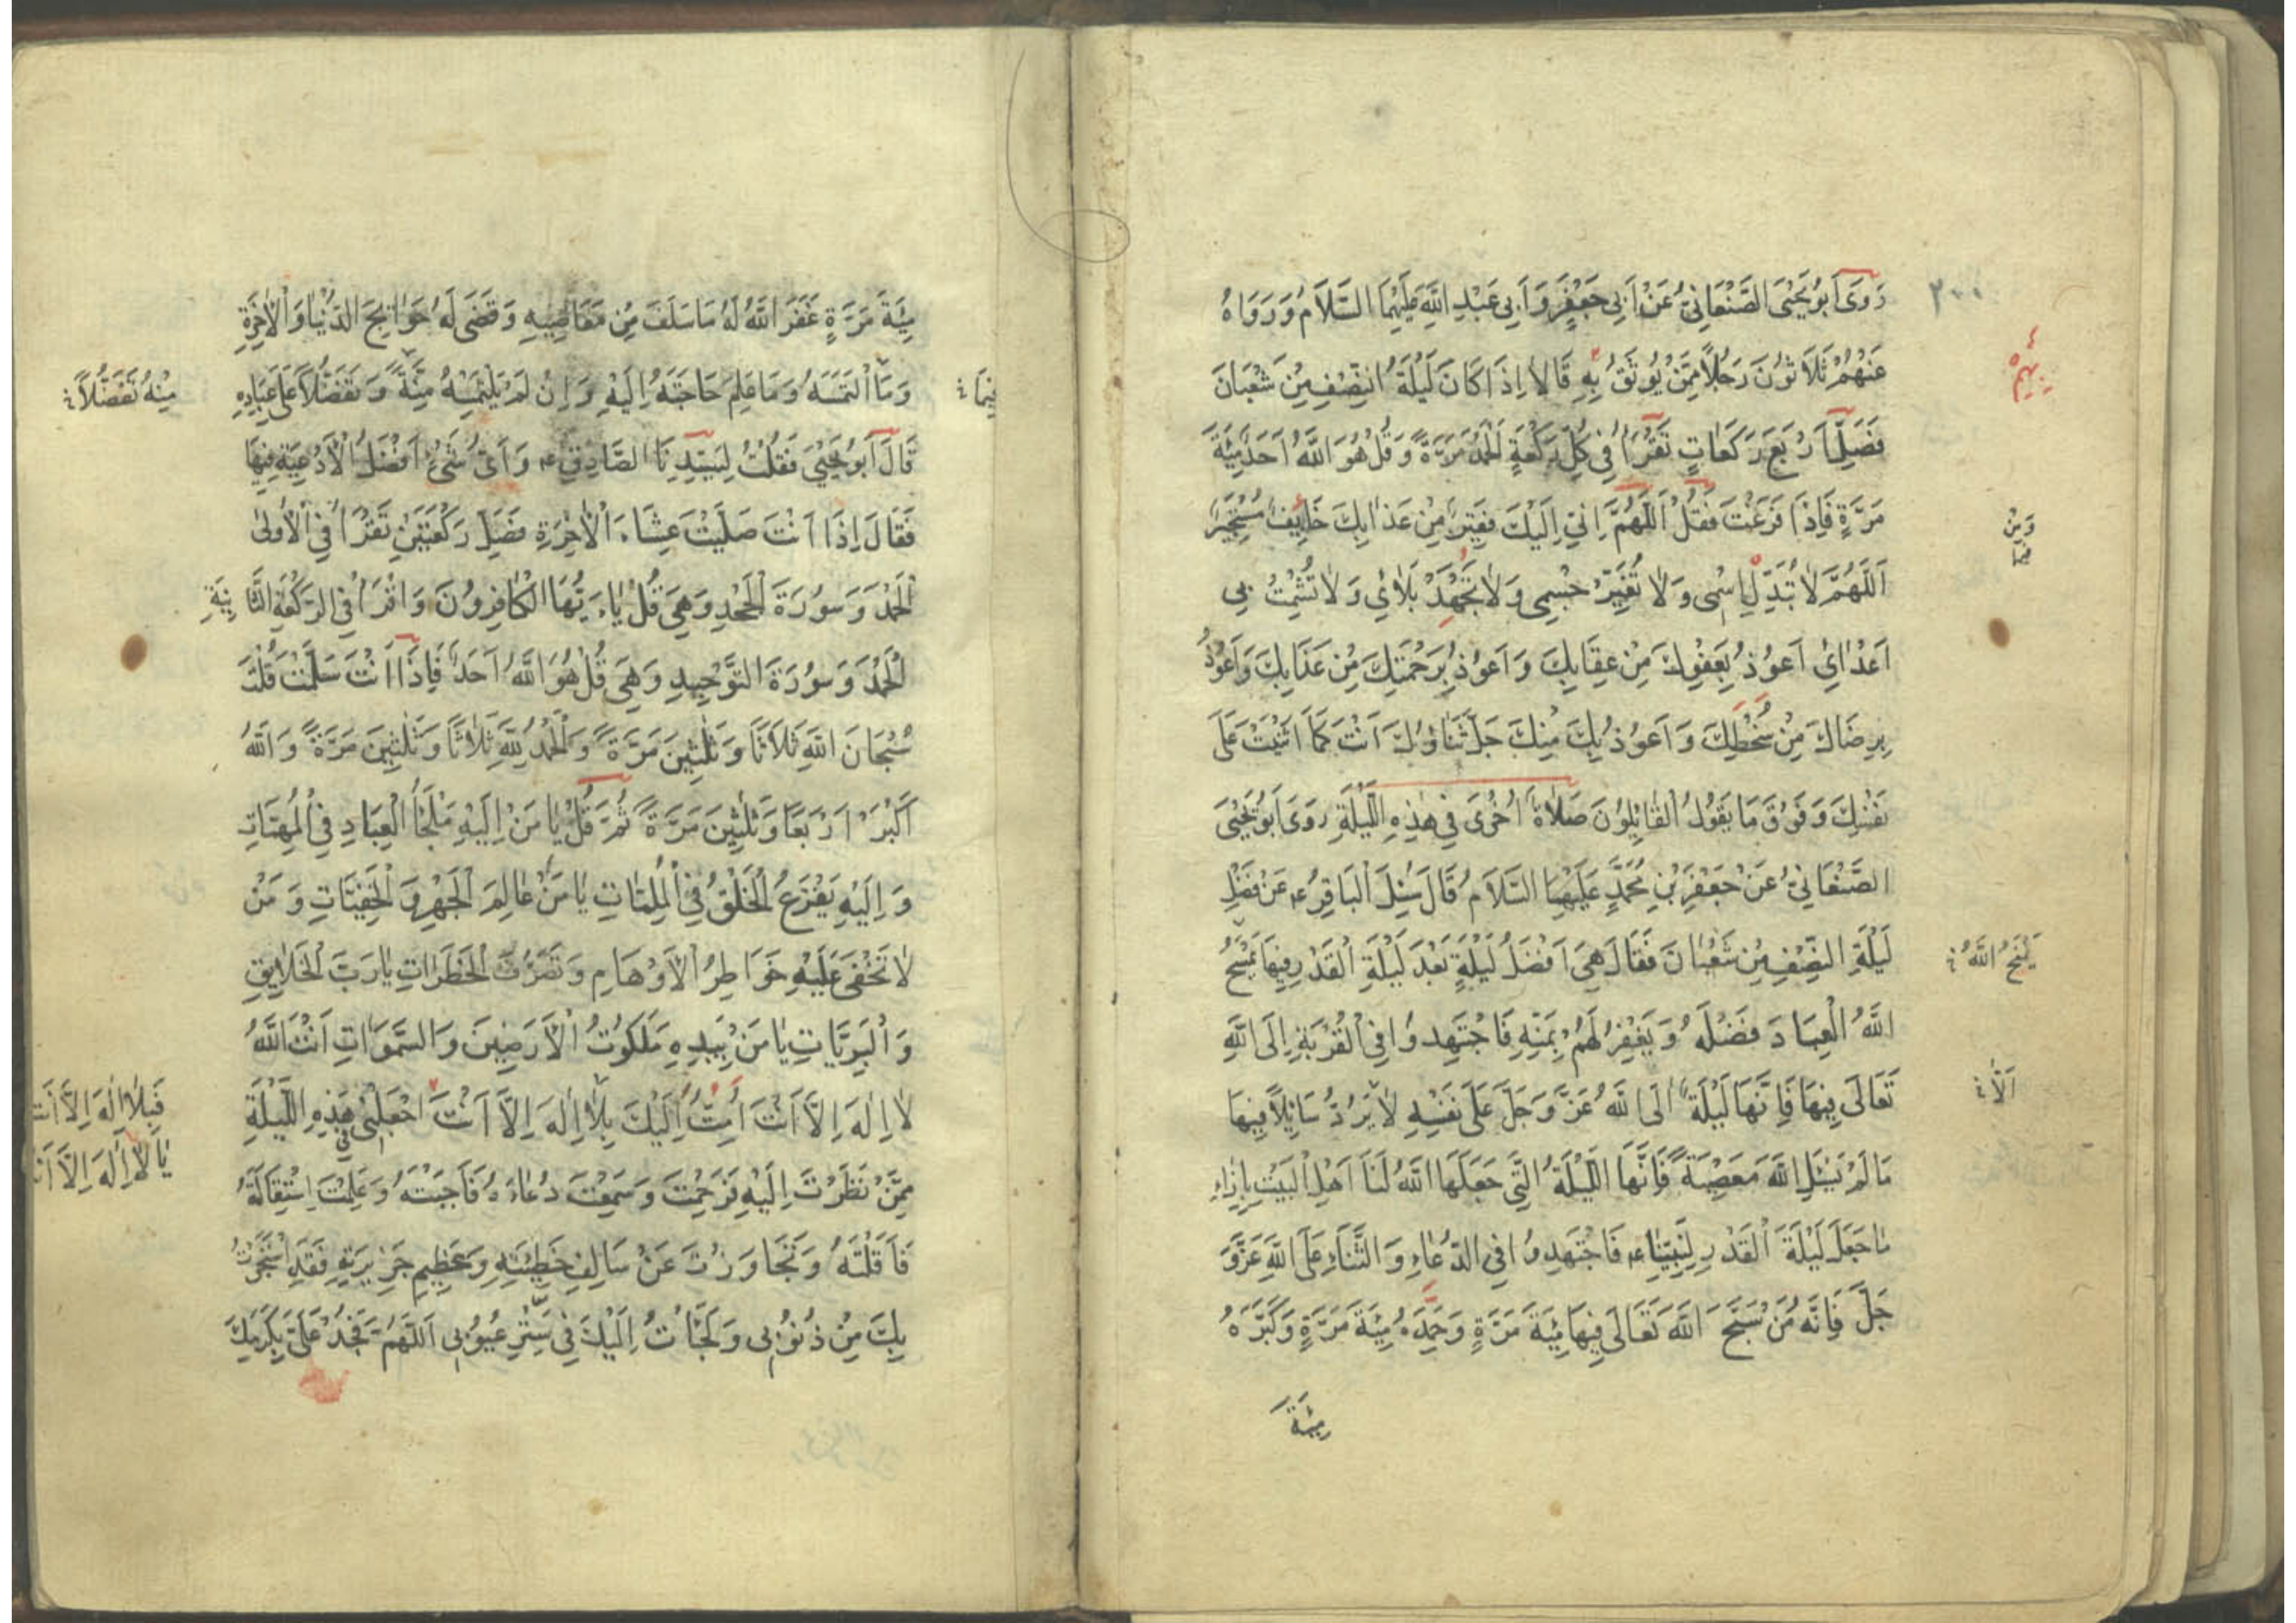 ٢٠٠
رَوَى اَبُو يَحْيَى الصَّنْعَانِيُّ عَنْ اَبِى جَعْفَرٍ وَ اَبِى عَبْدِ اللّٰهِ عَلَيْهِمَا السَّلَامُ وَ رَوَاهُ
عَنْهُمْ ثَلَاثُونَ رَجُلًا مِمَّنْ يُوثَقُ بِهِ قَالَا اِذَا كَانَ لَيْلَةُ النِّصْفِ مِنْ شَعْبَانَ
فَصَلِّ اَرْبَعَ رَكَعَاتٍ تَقْرَأُ فِى كُلِّ رَكْعَةٍ اَلْحَمْدُ مَرَّةً وَ قُلْ هُوَ اللّٰهُ اَحَدٌ مِئَةَ
مَرَّةٍ فَاِذَا فَرَغْتَ فَقُلْ اَللّٰهُمَّ اِنِّى اِلَيْكَ فَقِيرٌ وَ مِنْ عَذَابِكَ خَائِفٌ مُسْتَجِيرٌ
وَ مِنْ
اَللّٰهُمَّ لَا تُبَدِّلْ اِسْمِى وَ لَا تُغَيِّرْ جِسْمِى وَ لَا تَجْهَدْ بَلَائِي وَ لَا تُشْمِتْ بِى
اَعْدَائِي اَعُوذُ بِعَفْوِكَ مِنْ عِقَابِكَ وَ اَعُوذُ بِرَحْمَتِكَ مِنْ عَذَابِكَ وَ اَعُوذُ
بِرِضَاكَ مِنْ سُخْطِكَ وَ اَعُوذُ بِكَ مِنْكَ جَلَّ ثَنَاؤُكَ اَنْتَ كَمَا اَثْنَيْتَ عَلَى
نَفْسِكَ وَ فَوْقَ مَا يَقُولُ الْقَائِلُونَ صَلَاةٌ اُخْرَى فِى هٰذِهِ اللَّيْلَةِ رَوَى اَبُو يَحْيَى
الصَّنْعَانِيُّ عَنْ جَعْفَرِ بْنِ مُحَمَّدٍ عَلَيْهِمَا السَّلَامُ قَالَ سُئِلَ الْبَاقِرُ ع عَنْ فَضْلِ
لَيْلَةِ النِّصْفِ مِنْ شَعْبَانَ فَقَالَ هِىَ اَفْضَلُ لَيْلَةٍ بَعْدَ لَيْلَةِ الْقَدْرِ فِيهَا يَمْنَحُ
اللّٰهُ الْعِبَادَ فَضْلَهُ وَ يَغْفِرُ لَهُمْ بِمَنِّهِ فَاجْتَهِدُوا فِى الْقُرْبَةِ اِلَى اللّٰهِ
تَعَالَى فِيهَا فَاِنَّهَا لَيْلَةٌ اٰلَى اللّٰهُ عَزَّ وَ جَلَّ عَلَى نَفْسِهِ لَا يَرُدُّ سَائِلًا فِيهَا
اَلَّا
مَا لَمْ يَسْئَلِ اللّٰهَ مَعْصِيَةً فَاِنَّهَا اللَّيْلَةُ الَّتِى جَعَلَهَا اللّٰهُ لَنَا اَهْلَ الْبَيْتِ بِاِزَاءِ
مَا جَعَلَ لَيْلَةَ الْقَدْرِ لِنَبِيِّنَا ع فَاجْتَهِدُوا فِى الدُّعَاءِ وَ الثَّنَاءِ عَلَى اللّٰهِ عَزَّ وَ
جَلَّ فَاِنَّهُ مَنْ سَبَّحَ اللّٰهَ تَعَالَى فِيهَا مِئَةَ مَرَّةٍ وَ حَمِدَهُ مِئَةَ مَرَّةٍ وَ كَبَّرَهُ
مِئَةَ
مِئَةَ مَرَّةٍ غَفَرَ اللّٰهُ لَهُ مَا سَلَفَ مِنْ مَعَاصِيهِ وَ قَضَى لَهُ حَوَائِجَ الدُّنْيَا وَ الْاٰخِرَةِ
وَ مَا الْتَمَسَهُ وَ مَا عَلِمَ حَاجَتَهُ اِلَيْهِ وَ اِنْ لَمْ يَلْتَمِسْهُ مِنَّةً وَ تَفَضُّلًا عَلَى عِبَادِهِ
مِنْهُ تَفَضُّلًا
قَالَ اَبُو يَحْيَى فَقُلْتُ لِسَيِّدِنَا الصَّادِقِ ع وَ اَيُّ شَيْءٍ اَفْضَلُ الْاَدْعِيَةِ فِيهَا
فَقَالَ اِذَا اَنْتَ صَلَّيْتَ عِشَاءَ الْاٰخِرَةِ فَصَلِّ رَكْعَتَيْنِ تَقْرَأُ فِى الْاُولٰى
اَلْحَمْدَ وَ سُورَةَ الْجَحْدِ وَ هِىَ قُلْ يَا ءَيُّهَا الْكَافِرُونَ وَ اقْرَأْ فِى الرَّكْعَةِ الثَّانِيَةِ
اَلْحَمْدَ وَ سُورَةَ التَّوْحِيدِ وَ هِىَ قُلْ هُوَ اللّٰهُ اَحَدٌ فَاِذَا اَنْتَ سَلَّمْتَ قُلْتَ
سُبْحَانَ اللّٰهِ ثَلَاثًا وَ ثَلٰثِينَ مَرَّةً وَ الْحَمْدُ لِلّٰهِ ثَلَاثًا وَ ثَلٰثِينَ مَرَّةً وَ اللّٰهُ
اَكْبَرُ اَرْبَعًا وَ ثَلٰثِينَ مَرَّةً ثُمَّ قُلْ يَا مَنْ اِلَيْهِ مَلْجَأُ الْعِبَادِ فِى الْمُهِمَّاتِ
وَ اِلَيْهِ يَفْزَعُ الْخَلْقُ فِى الْمُلِمَّاتِ يَا مَنْ عَالِمَ الْجَهْرِ وَ الْخَفِيَّاتِ وَ مَنْ
لَا تَخْفَى عَلَيْهِ خَوَاطِرُ الْاَوْهَامِ وَ تَصَرُّفُ الْخَطَرَاتِ يَا رَبَّ الْخَلَايِقِ
وَ الْبَرِيَّاتِ يَا مَنْ بِيَدِهِ مَلَكُوتُ الْاَرَضِينَ وَ السَّمٰوَاتِ اَنْتَ اللّٰهُ
لَا اِلٰهَ اِلَّا اَنْتَ اَمُتُّ اِلَيْكَ بِلَا اِلٰهَ اِلَّا اَنْتَ اجْعَلْنِى فِى هٰذِهِ اللَّيْلَةِ
فَبِلَا اِلٰهَ اِلَّا اَنْتَ
يَا لَا اِلٰهَ اِلَّا
مِمَّنْ نَظَرْتَ اِلَيْهِ فَرَحِمْتَ وَ سَمِعْتَ دُعَاءَهُ فَاَجَبْتَهُ وَ عَلِمْتَ اسْتِقَالَتَهُ
فَاَقَلْتَهُ وَ تَجَاوَزْتَ عَنْ سَالِفِ خَطِيئَتِهِ وَ عَظِيمِ جَرِيرَتِهِ فَقَدِ اسْتَجَرْتُ
بِكَ مِنْ ذُنُوبِى وَ لَجَأْتُ اِلَيْكَ فِى سَتْرِ عُيُوبِى اَللّٰهُمَّ فَجُدْ عَلَىَّ بِكَرَمِكَ